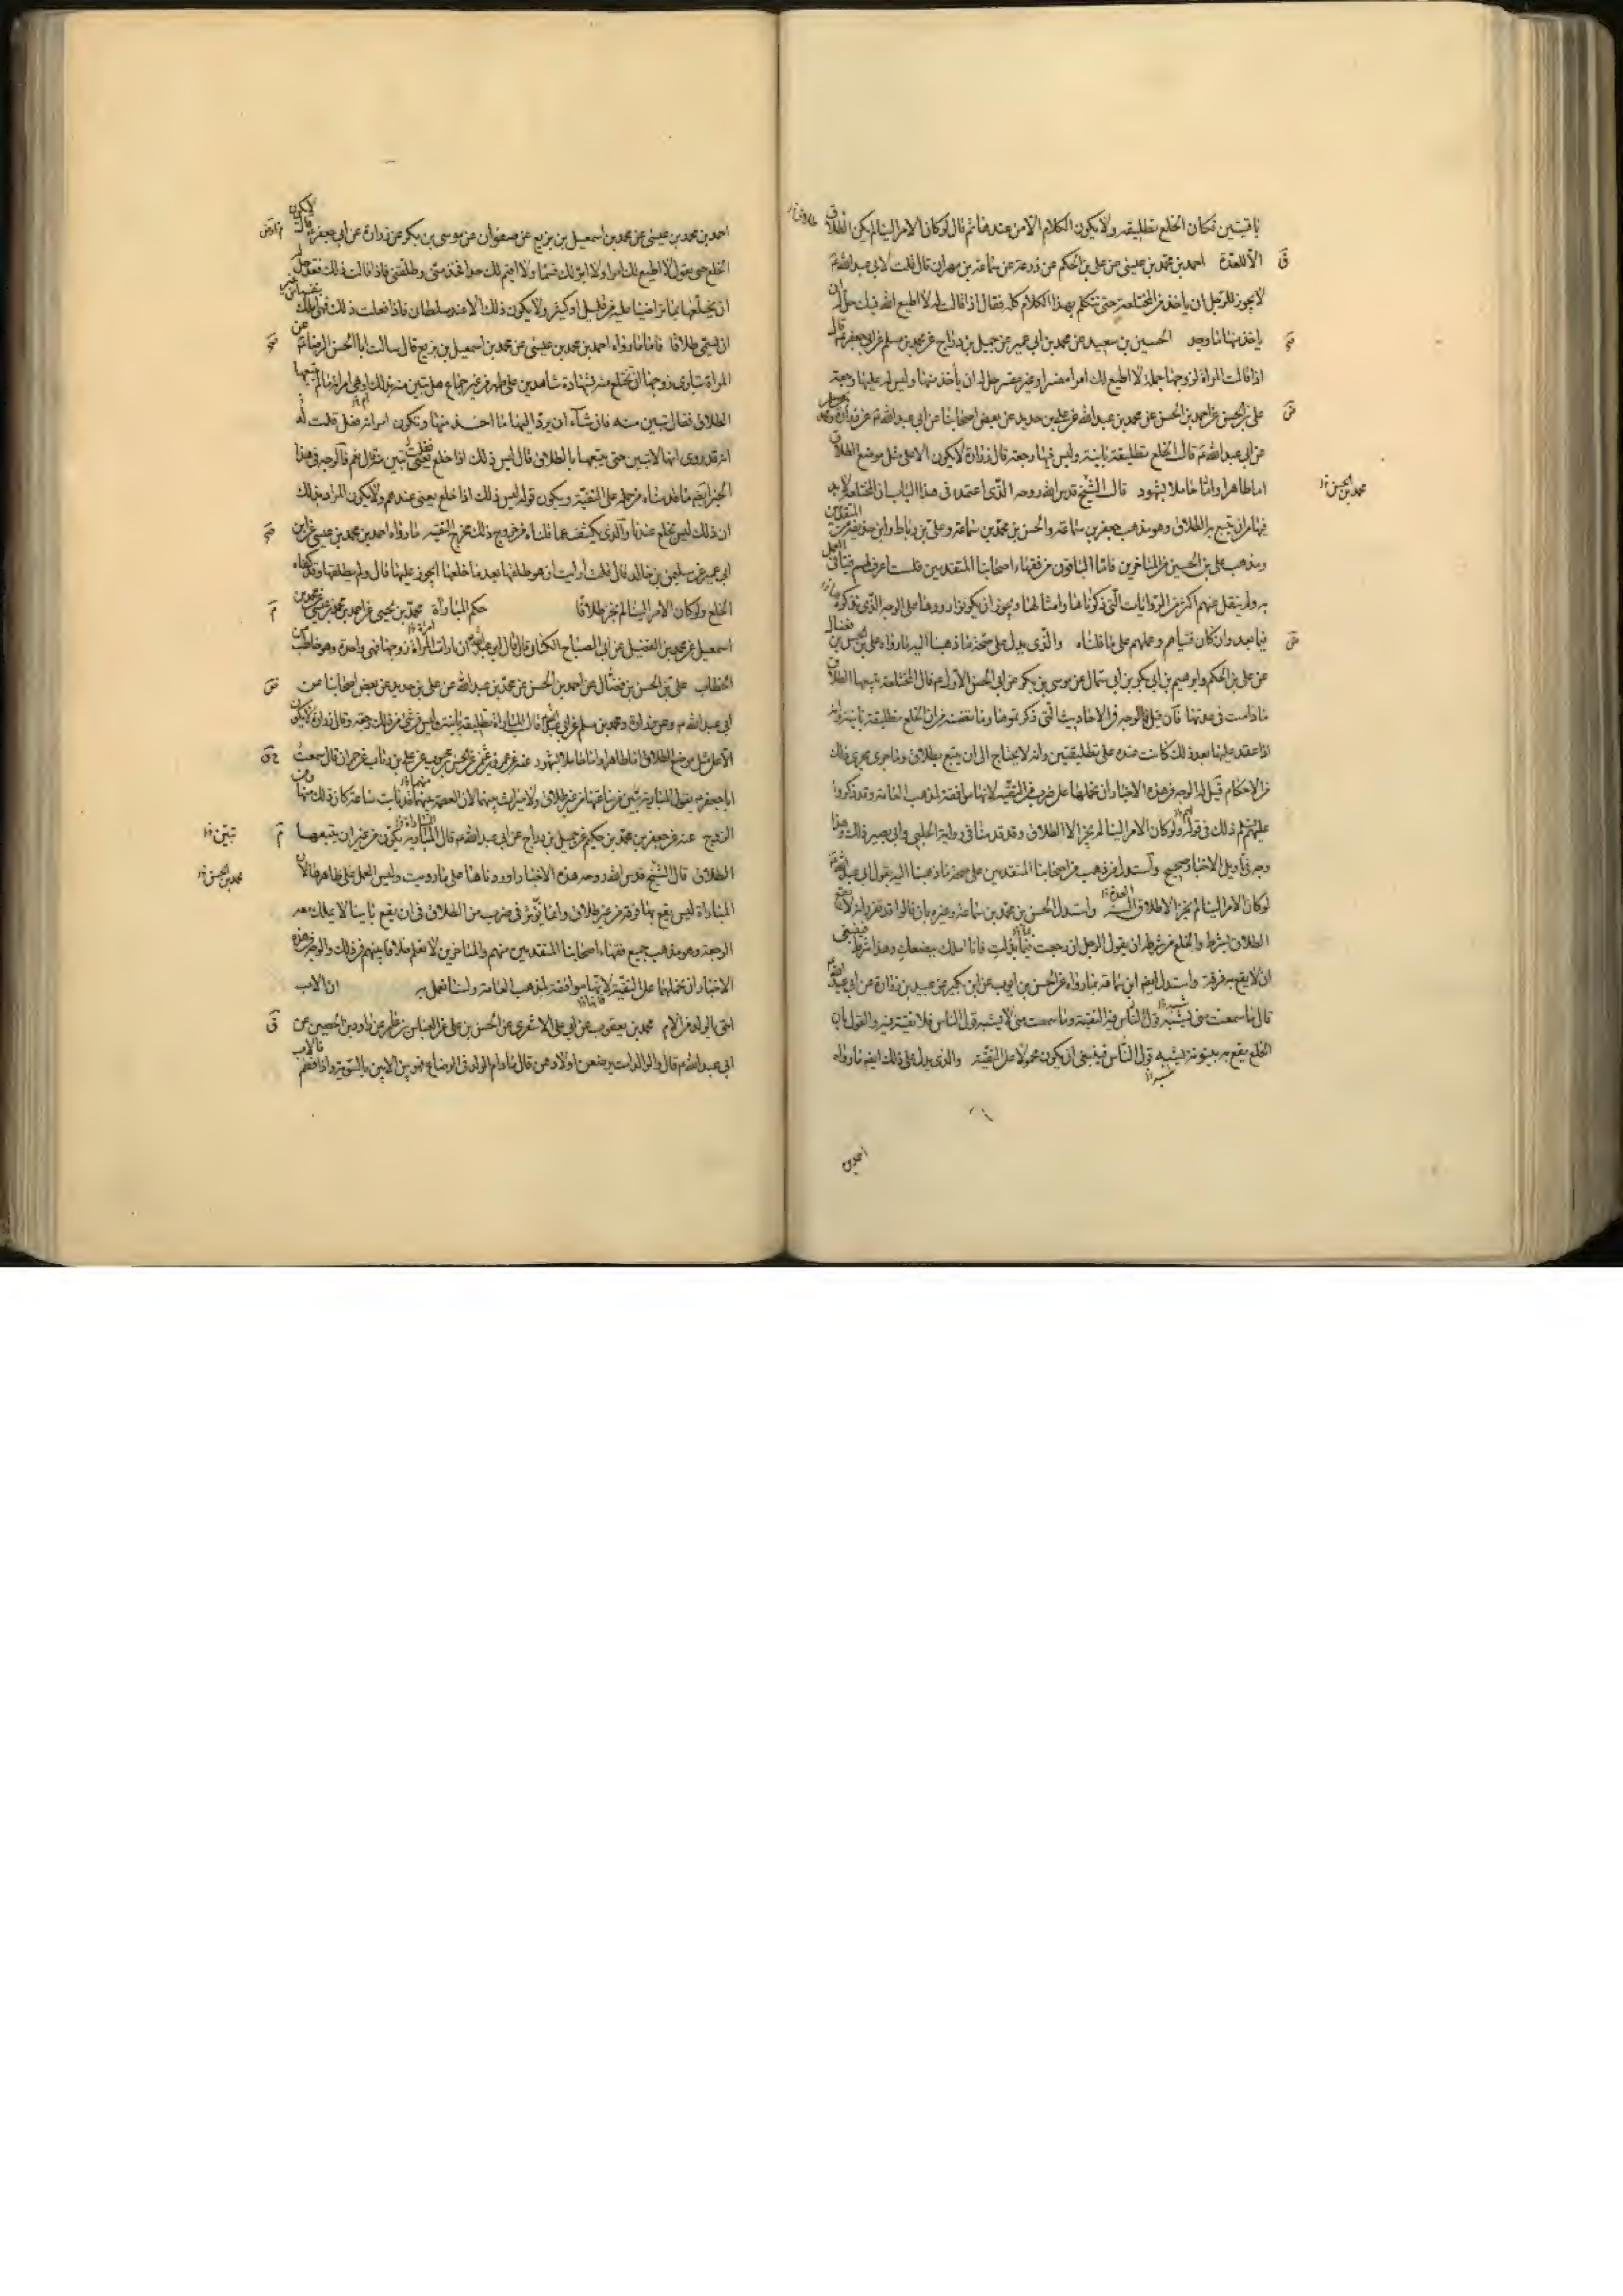 باقيتين فكان الخلع تطليقة ولا يكون الكلام الا من عندها ثم قال لو كان الامر الينا لم يكن الطلاق
الا للعدة احمد بن محمد بن عيسى عن علي بن الحكم عن زرعة عن سماعة بن مهران قال قلت لابي عبد الله ع
لا يجوز للرجل ان ياخذ من المختلعة حتى تتكلم بهذا الكلام كله فقال اذا قالت له لا اطيع الله فيك حل له ان
ياخذ منها ما وجد الحسين بن سعيد عن محمد بن ابي عمير عن جميل بن دراج عن محمد بن مسلم عن ابي جعفر ع قال
اذا قالت المراة لزوجها جملة لا اطيع لك امرا مفسرا وغير مفسر حل له ان يأخذ منها وليس له عليها رجعة
علي بن الحسن عن احمد بن الحسن عن محمد بن عبد الله عن علي بن حديد عن بعض اصحابنا عن ابي عبد الله ع عن زرارة ومحمد بن مسلم
عن ابي عبد الله ع قال الخلع تطليقة بائنة وليس فيها رجعة قال زرارة لا يكون الا على مثل موضع الطلاق
اما طاهرا واما حاملا بشهود قال الشيخ قدس الله روحه الذي اعتمده في هذا الباب ان المختلعة لا بد
فيها من ان تتبع بالطلاق وهو مذهب جعفر بن سماعة والحسن بن محمد بن سماعة وعلي بن رباط وابن حذيفة من المتقدمين
ومذهب علي بن الحسين من المتاخرين فاما الباقون من فقهاء اصحابنا المتقدمين فلست اعرف لهم فتيا في العمل
به ولم ينقل عنهم اكثر من الروايات التي ذكرناها وامثالها ويجوز ان يكونوا رووها على الوجه الذي نذكره
فيما بعد وان كان فتياهم وعملهم على ما قلناه والذي يدل على صحة ما ذهبنا اليه ما رواه علي بن الحسن بن فضال
عن علي بن الحكم وابراهيم بن ابي بكر بن ابي سمال عن موسى بن بكر عن ابي الحسن الاول ع قال المختلعة يتبعها الطلاق
ما دامت في عدتها فان قيل فما الوجه في الاحاديث التي ذكرتموها وما تضمنته من ان الخلع تطليقة بائنة وانه
اذا عقد عليها بعد ذلك كانت عنده على تطليقتين وانه لا يحتاج الى ان يتبع بطلاق وما جرى مجرى ذلك
من الاحكام قيل له الوجه في هذه الاخبار ان نحملها على ضرب من التقية لانها موافقة لمذهب العامة وقد ذكروا
عليهم السلم ذلك في قولهم ولو كان الامر الينا لم يجز الا الطلاق وقد قدمنا في رواية الحلبي وابي بصير ذلك وهذا
وجه في تاويل الاخبار صحيح واستدل من ذهب من اصحابنا المتقدمين على صحة ما ذهبنا اليه بقول ابي عبد الله ع
لو كان الامر الينا لم يجز الا طلاق السنة واستدل الحسن بن محمد بن سماعة وغيره بان قالوا قد تقرر انه لا يقع
الطلاق بشرط والخلع من شرطه ان يقول الرجل ان رجعت فيما بذلت فانا املك ببضعك وهذا شرط فينبغي
ان لا يقع به فرقة واستدل ايضا ابن سماعة بما رواه عن الحسن بن ايوب عن ابن بكير عن عبيد بن زرارة عن ابي عبد الله ع
قال ما سمعت مني يشبه قول الناس فيه التقية وما سمعت مني لا يشبه قول الناس فلا تقية فيه والقول بان
الخلع يقع به بينونة يشبه قول الناس فينبغي ان يكون محمولا على التقية والذي يدل على ذلك ايضا ما رواه
احمد بن
محمد بن الحسن
احمد بن محمد بن عيسى عن محمد بن اسمعيل بن بزيع عن صفوان عن موسى بن بكر عن زرارة عن ابي جعفر ع قال لا يكون
الخلع حتى يقول لا اطيع لك امرا ولا ابر لك قسما ولا اقيم لك حدا فخذ مني وطلقني فاذا قالت ذلك فقد حل له
ان يخلعها بما تراضيا عليه من قليل او كثير ولا يكون ذلك الا عند سلطان فاذا فعلت ذلك فهي املك بنفسها من غير
ان يسمي طلاقا فاما ما رواه احمد بن محمد بن عيسى عن محمد بن اسمعيل بن بزيع قال سالت ابا الحسن الرضا ع عن
المراة تباري زوجها او تختلع منه بشهادة شاهدين على طهر من غير جماع هل تبين منه بذلك او هي امراته ما لم يتبعها
الطلاق فقال تبين منه فان شآء ان يرد اليها ما اخذ منها وتكون امراته فعل قلت له
انه قد روي انها لا تبين حتى يتبعها بالطلاق قال ليس ذلك اذا خلع فقلت تبين منه قال نعم فالوجه في هذا
الخبر ايضا ما قدمناه من حمله على التقية ويكون قوله ليس ذلك اذا خلع يعني عندهم ولا يكون المراد بذلك
ان ذلك ليس بخلع عندنا والذي يكشف عما قلناه من خروج ذلك مخرج التقية ما رواه احمد بن محمد بن عيسى عن ابن
ابي عمير عن سليمن بن خالد قال قلت ارايت ان هو طلقها بعد ما خلعها ايجوز عليها قال ولم يطلقها وقد كفاه
الخلع ولو كان الامر الينا لم نجز طلاقا حكم المباراة محمد بن يحيى عن احمد بن محمد بن عيسى عن محمد بن
اسمعيل عن محمد بن الفضيل عن ابي الصباح الكناني قال قال ابو عبد الله ع ان بارات المراة زوجها فهي واحدة وهو خاطب من
الخطاب علي بن الحسن بن فضال عن احمد بن الحسن عن محمد بن عبد الله عن علي بن حديد عن بعض اصحابنا عن
ابي عبد الله ع وعن زرارة ومحمد بن مسلم عن ابي عبد الله ع قال المباراة تطليقة بائنة وليس في شئ من ذلك رجعة وقال زرارة لا يكون
الا على مثل موضع الطلاق اما طاهرا واما حاملا بشهود عنه عن عمرو بن عثمن عن الحسن بن محبوب عن علي بن رئاب عن حمران قال سمعت
ابا جعفر ع يقول المبارية تبين من ساعتها من غير طلاق ولا ميراث بينهما لان العصمة بينهما قد بانت ساعة كان ذلك منها ومن
الزوج عنه عن جعفر بن محمد بن حكيم عن جميل بن دراج عن ابي عبد الله ع قال المباراة تكون من غير ان يتبعها
الطلاق قال الشيخ قدس الله روحه هذه الاخبار اوردناها على ما رويت وليس العمل على ظاهرها لان
المباراة ليس يقع بها فرقة من غير طلاق وانما يؤثر في ضرب من الطلاق في ان يقع بائنا لا يملك معه
الرجعة وهو مذهب جميع فقهاء اصحابنا المتقدمين منهم والمتاخرين لا نعلم خلافا بينهم في ذلك والوجه في هذه
الاخبار ان نحملها على التقية لانها موافقة لمذهب العامة ولسنا نعمل به ان الاب
احق بالولد من الام محمد بن يعقوب عن ابي علي الاشعري عن الحسن بن علي عن العباس بن عامر عن داود بن الحصين عن
ابي عبد الله ع قال والوالدات يرضعن اولادهن قال ما دام الولد في الرضاع فهو بين الابوين بالسوية واذا فطم فالاب
تبين
محمد بن الحسن